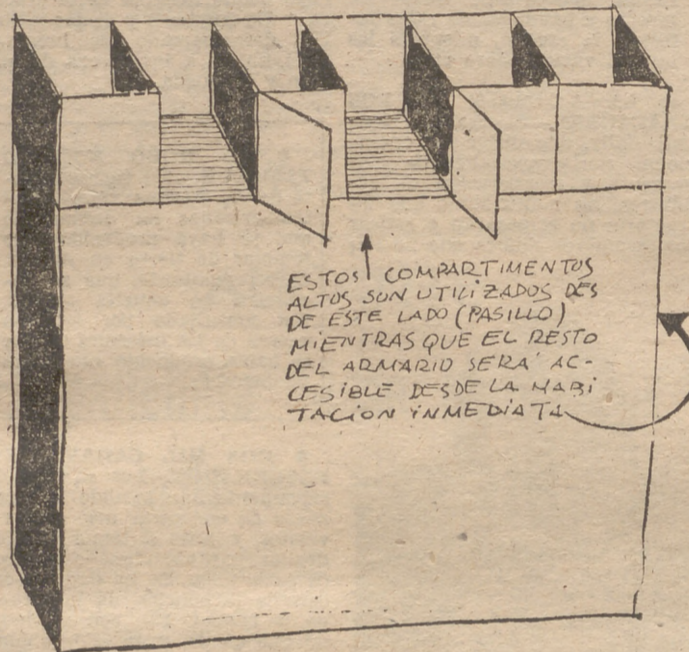 ESTOS COMPARTIMENTOS
ALTOS SON UTILIZADOS DES
DE ESTE LADO (PASILLO)
MIENTRAS QUE EL RESTO
DEL ARMARIO SERÁ AC-
CESIBLE DESDE LA HABI
TACION INMEDIATA